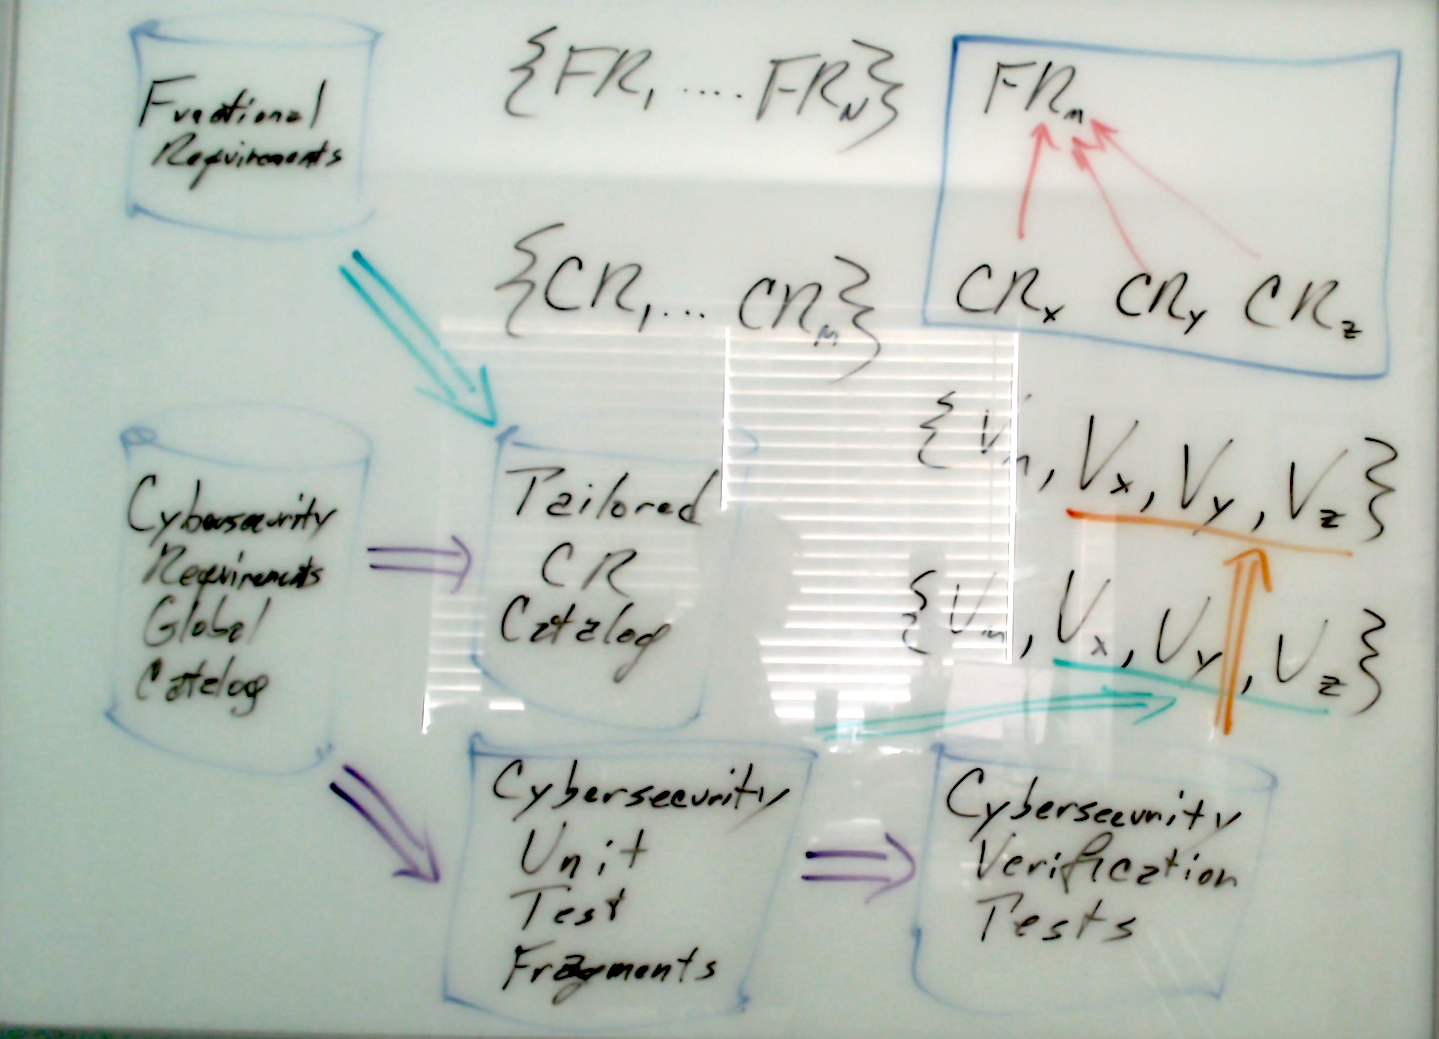 Functional
Requirements
{FR₁, .... FR_N}
FRₘ
{CR₁, ... CRₘ}
CRₓ CRᵧ CR_z
Cybersecurity
Requirements
Global
Catalog
Tailored
CR
Catalog
Vₓ, Vᵧ, V_z}
{Vₘ, Vₓ, Vᵧ, V_z}
Cybersecurity
Unit
Test
Fragments
Cybersecurity
Verification
Tests